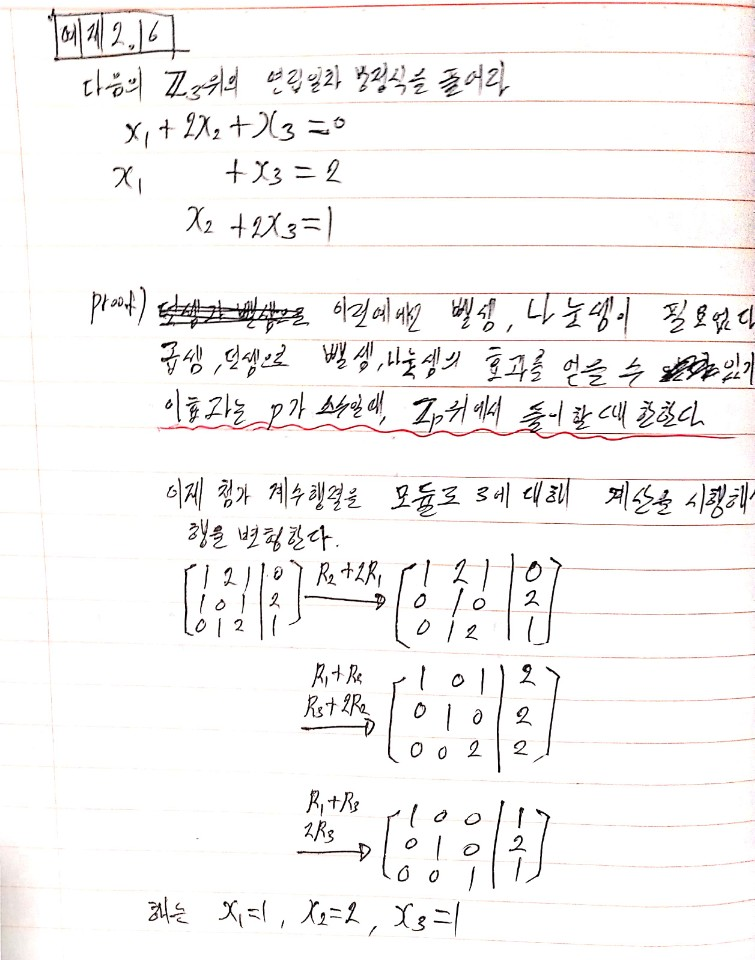 예제 2.16
다음의 ℤ₃위의 연립일차 방정식을 풀어라
x₁ + 2x₂ + x₃ = 0
x₁ + x₃ = 2
x₂ + 2x₃ = 1
proof) 이런예에선 뺄셈, 나눗셈이 필요없다
곱셈, 덧셈으로 뺄셈, 나눗셈의 효과를 얻을 수 있기
이효과는 p가 소수일때, ℤₚ위에서 들이 할 때 환한다.
이제 첨가 계수행렬을 모듈로 3에 대해 계산을 시행해
행을 변형한다.
[1 2 1 | 0] R₂+2R₁ [1 2 1 | 0]
[1 0 1 | 2] → [0 1 0 | 2]
[0 1 2 | 1] [0 1 2 | 1]
R₁+R₂ [1 0 1 | 2]
R₃+2R₂ → [0 1 0 | 2]
[0 0 2 | 2]
R₁+R₃ [1 0 0 | 1]
2R₃ → [0 1 0 | 2]
[0 0 1 | 1]
해는 x₁=1, x₂=2, x₃=1